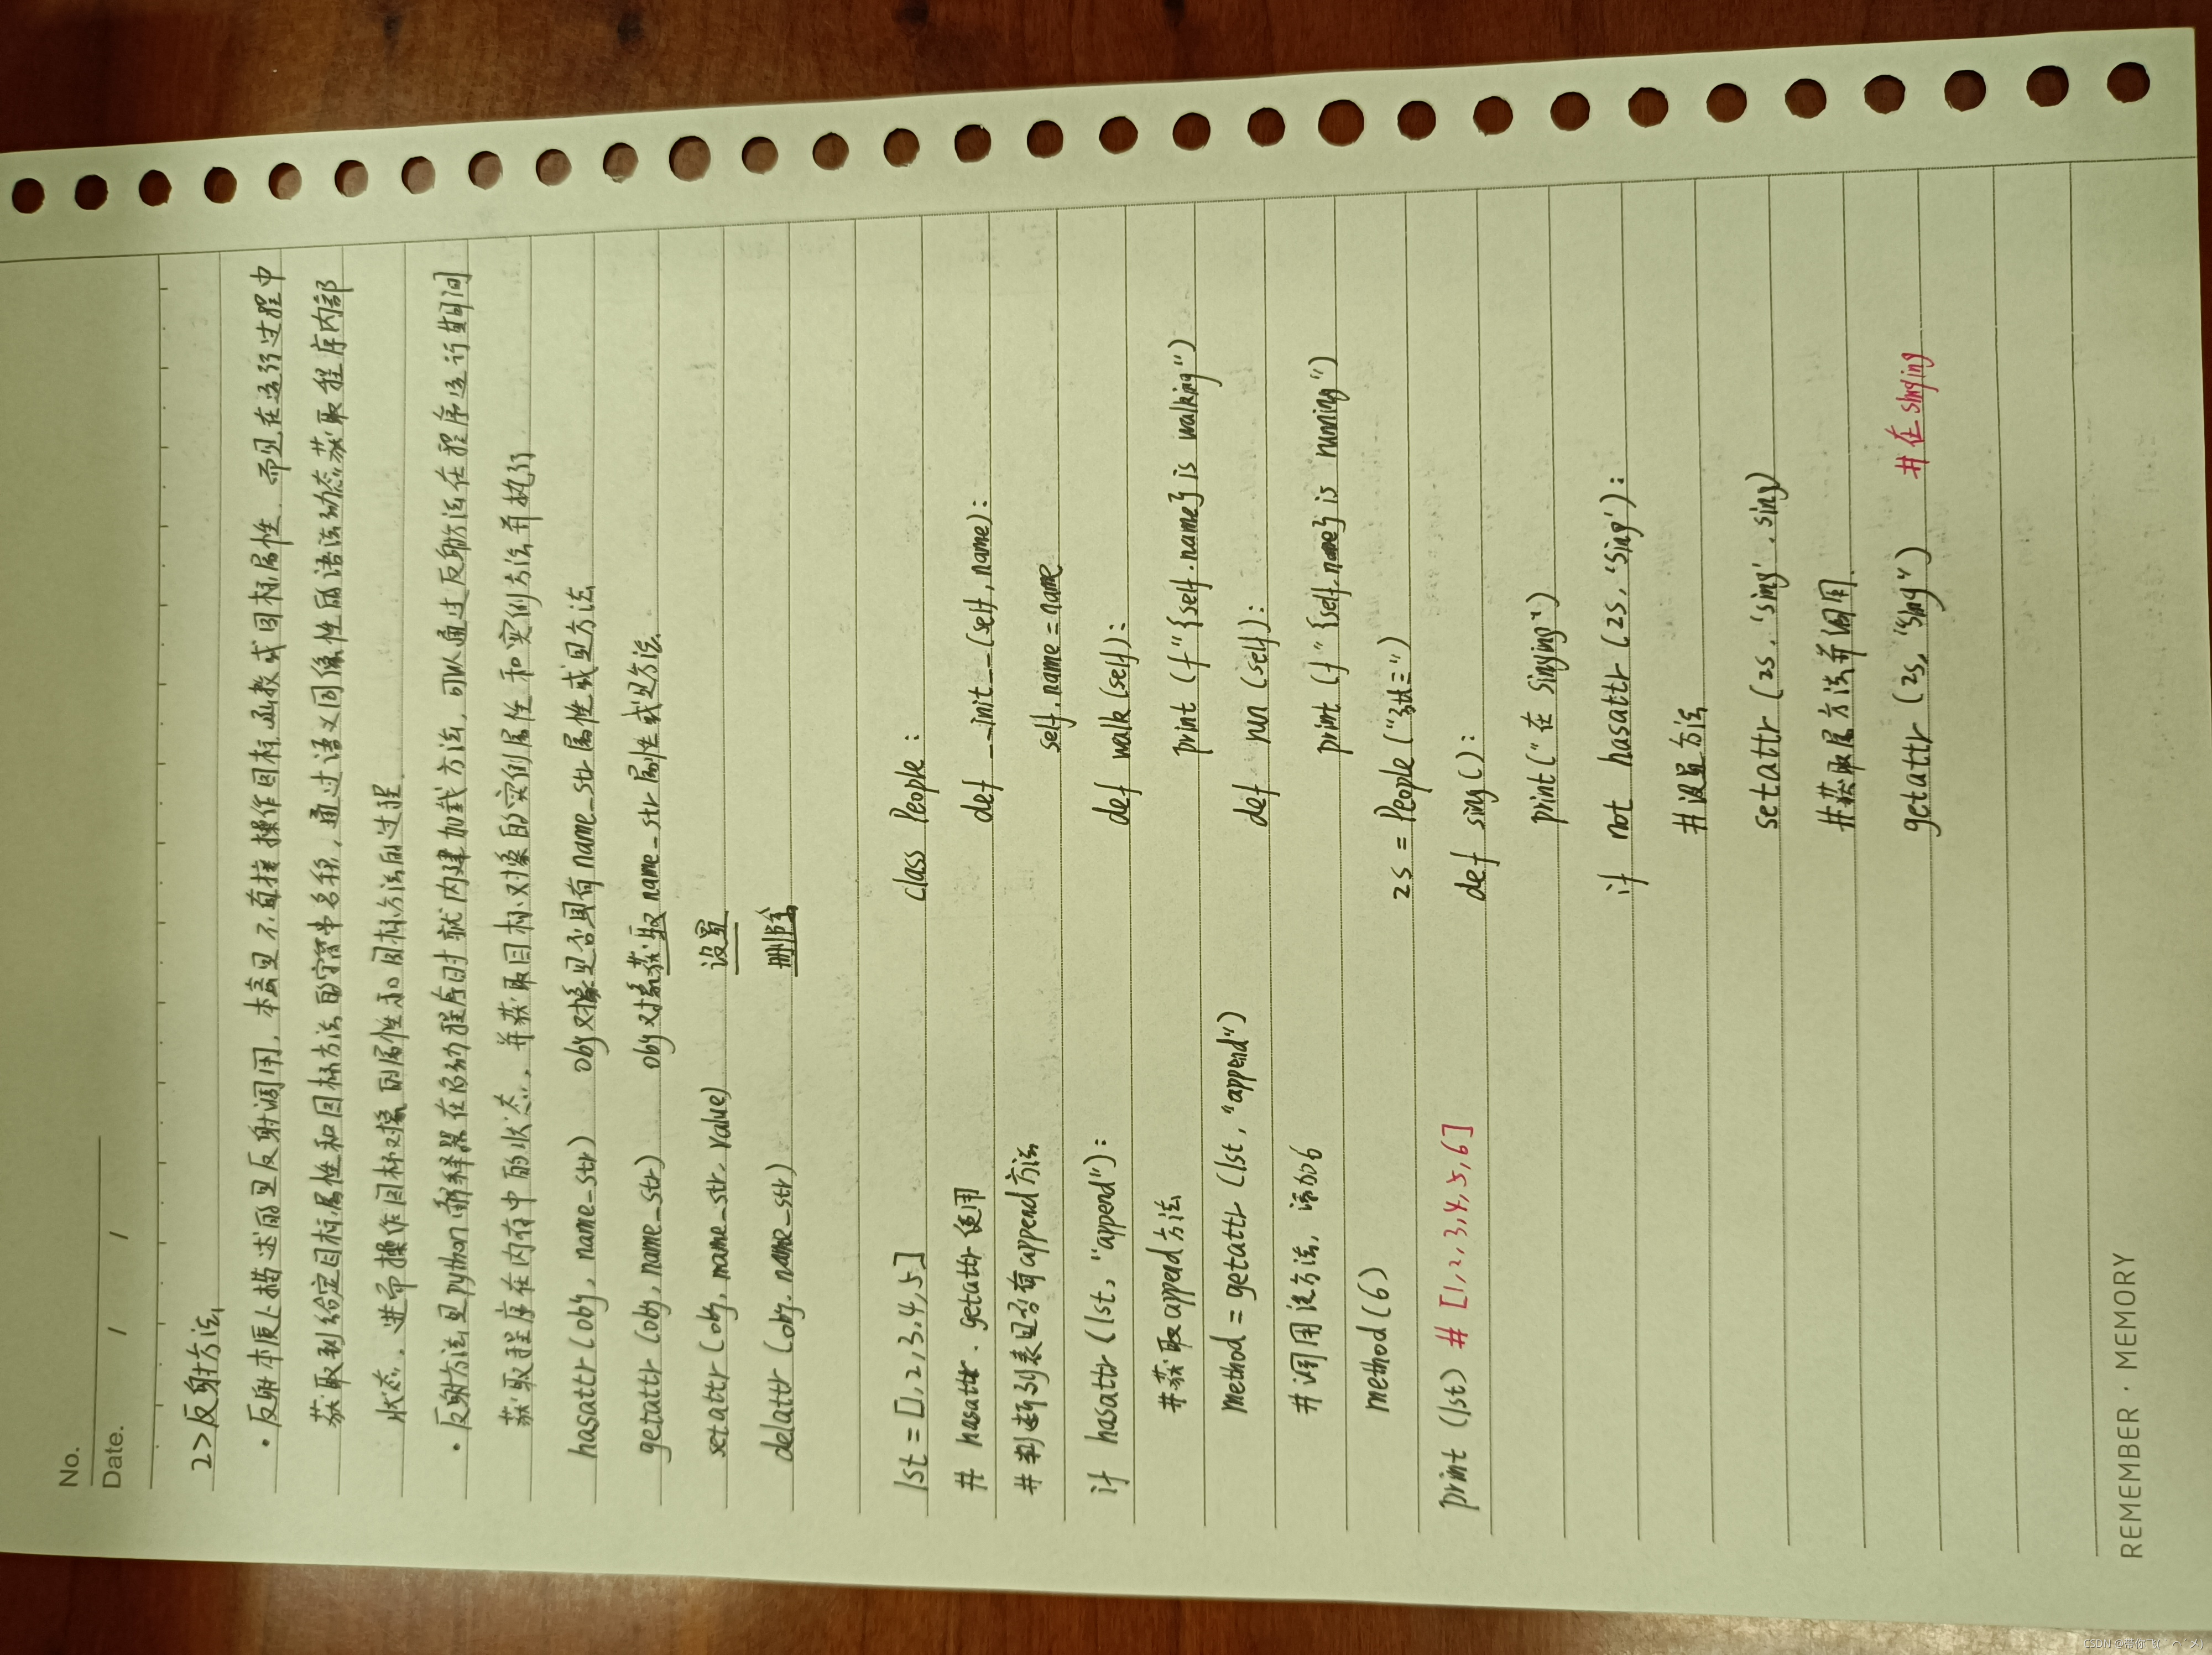 No.
Date. / /
2>反射方法
·反射本质上描述的是反射调用,本意是不直接操作目标函数或目标属性 而是在运行过程中
获取到给定目标属性和目标方法的字符串名称,通过语义同像性的语法动态获取程序内部
状态,进而操作目标对象的属性和目标方法的过程.
·反射方法是python解释器在启动程序时就内建加载方法,可以通过反射方法在程序运行期间
获取程序在内存中的状态,并获取目标对象的实例属性和实例方法并执行
hasattr(obj, name_str) obj对象是否具有name_str属性或是方法
getattr(obj, name_str) obj对象获取name_str属性或是方法
setattr(obj, name_str, value) 设置
delattr(obj, name_str) 删除
lst = [1,2,3,4,5]
# hasattr. getattr使用
#判断列表是否有append方法
if hasattr(lst, "append"):
#获取append方法
method = getattr(lst, "append")
#调用该方法,添加6
method(6)
print(lst) # [1,2,3,4,5,6]
class People:
def __init__(self, name):
self.name = name
def walk(self):
print(f"{self.name} is walking")
def run(self):
print(f"{self.name} is running")
zs = People("张三")
def sing():
print("在 singing")
if not hasattr(zs, 'sing'):
#设置方法
setattr(zs, 'sing', sing)
#获取属方法并调用
getattr(zs, "sing") #在singing
REMEMBER · MEMORY